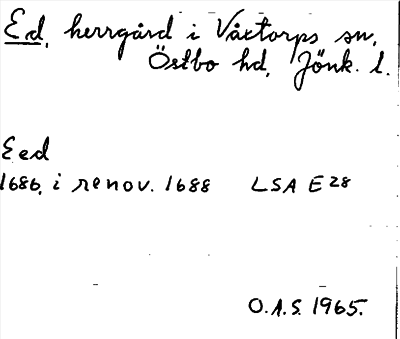 Ed, herrgård i Våxtorps sn,
Östbo hd, Jönk. l.
Eed
1686, i renov. 1688 LSA E28
O.A.S. 1965.